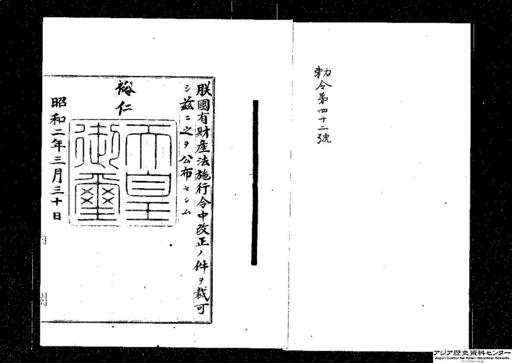 勅令第四十二號
朕國有財産法施行令中改正ノ件ヲ裁可
シ茲ニ之ヲ公布セシム
裕仁
天皇御璽
昭和二年三月三十日
アジア歴史資料センター
Japan Center for Asian Historical Records